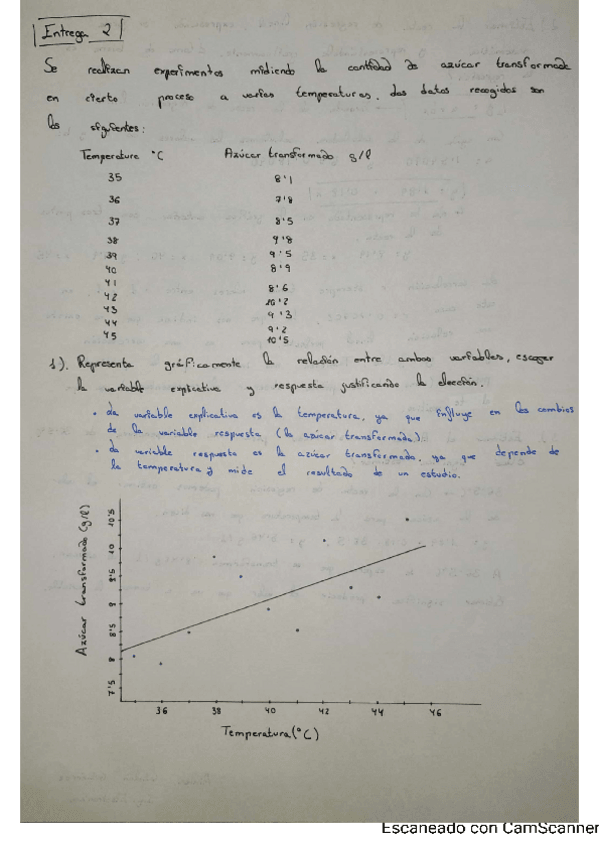 Entrega 2
Se realizan experimentos midiendo la cantidad de azúcar transformada
en cierto proceso a varias temperaturas. Los datos recogidos son
los siguientes:
Temperatura °C Azúcar transformado g/l
35 8'1
36 7'8
37 8'5
38 9'8
39 9'5
40 8'9
41 8'6
42 10'2
43 9'3
44 9'2
45 10'5
1). Representa gráficamente la relación entre ambas variables, escoger
la variable explicativa y respuesta justificando la elección.
• La variable explicativa es la temperatura, ya que influye en los cambios
de la variable respuesta (la azúcar transformada).
• La variable respuesta es la azúcar transformada, ya que depende de
la temperatura y mide el resultado de un estudio.
Azúcar transformado (g/l)
10'5
10
9'5
9
8'5
8
7'5
36 38 40 42 44 46
Temperatura (°C)
Escaneado con CamScanner